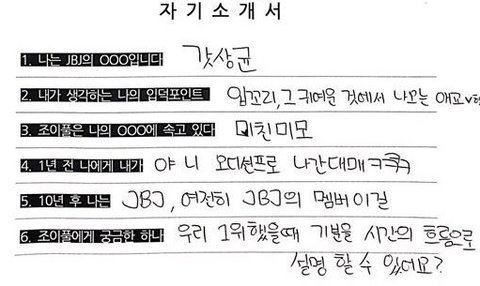 자 기 소 개 서
1. 나는 JBJ의 OOO입니다 갓상균
2. 내가 생각하는 나의 입덕포인트 입꼬리, 그 귀여운 것에서 나오는 애교
3. 조이풀은 나의 OOO에 속고 있다 미친미모
4. 1년 전 나에게 내가 야 니 오디션프로 나간대매 ㅋㅋㅋ
5. 10년 후 나는 JBJ, 여전히 JBJ의 멤버이길
6. 조이풀에게 궁금한 하나 우리 1위했을때 기분을 시간의 흐름으로
설명 할 수 있어요?